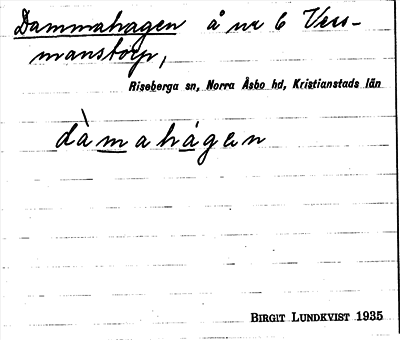 Dammahagen å nr 6 Vers-
manstorp,
Riseberga sn, Norra Åsbo hd, Kristianstads län
dàmahágen
BIRGIT LUNDKVIST 1935